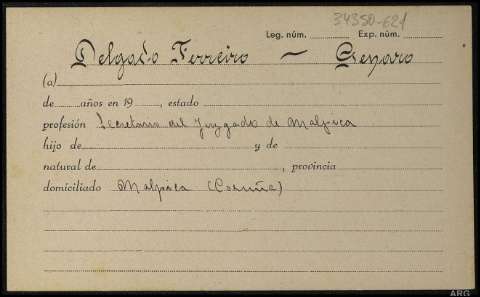 34350-621
Leg. núm. Exp. núm.
Delgado Ferreiro - Genaro
(a)
de años en 19 , estado
profesión Secretario del Juzgado de Malpica
hijo de y de
natural de , provincia
domiciliado Malpica (Coruña)
ARG